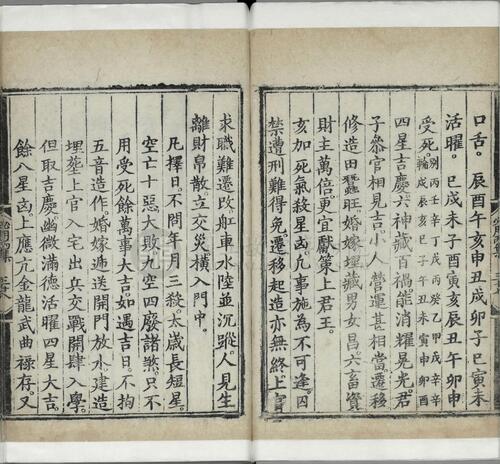 口舌。辰酉亥午亥申丑戌卯子巳寅未
活曜。巳戌未子酉寅亥辰丑午卯申
受死。
四星吉慶六神藏百禍能消耀晃光。君
子參官相見吉。小人營運甚相當。遷移
修造田蠶旺。婚嫁埋藏男女昌。六畜資
財主萬倍。更宜獻策上君王。
亥加死氣殺星凶。凡事施為不可逢。囚
禁遭刑難得免。遷移起造亦無終。上官
求職難遷改。舡車水陸並沉蹤。人見生
離財帛散。立交災橫入門中。
凡擇日。不問年月三殺。太歲長短星。
空亡十惡大敗九空四廢諸煞。只不
用受死。餘萬事大吉。如遇吉日。不拘
五音造作。婚嫁遞送開門放水。建造
埋塟上官入宅出兵交戰開肆入學。
但取吉慶幽微滿德活曜四星大吉。
餘八星凶。上應亢金龍武曲祿存。又